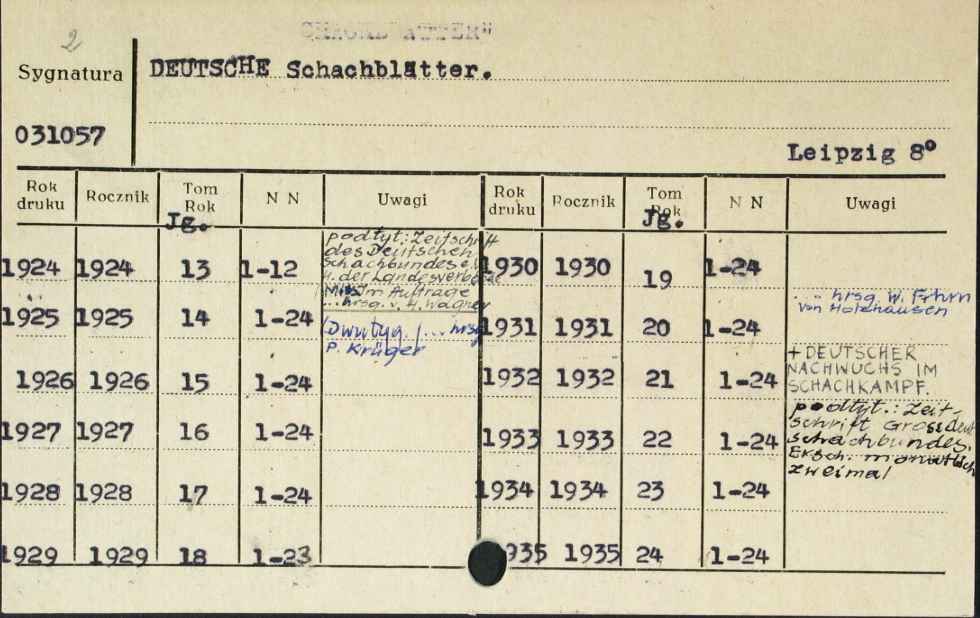 2
Sygnatura
DEUTSCHE Schachblätter.
031057
Leipzig 8°
Rok druku Rocznik Tom Rok N N Uwagi Rok druku Rocznik Tom Rok N N Uwagi
Jg. Jg.
1924 1924 13 1-12
podtyt.: Zeitschrift
des Deutschen
Schachbundes
u. der Landesverbände
Im Auftrage
...hrsg. v. H. Wagner
1930 1930 19 1-24
1925 1925 14 1-24
(Dwutyg.) ... hrsg
P. Krüger
1931 1931 20 1-24
... hrsg. W.
von Holzhausen
1926 1926 15 1-24
1932 1932 21 1-24
+ DEUTSCHER
NACHWUCHS IM
SCHACHKAMPF.
1927 1927 16 1-24
1933 1933 22 1-24
podtyt.: Zeit-
schrift Grossdeut
schachbundes.
Ersch. monatlich
zweimal
1928 1928 17 1-24
1934 1934 23 1-24
1929 1929 18 1-23
935 1935 24 1-24